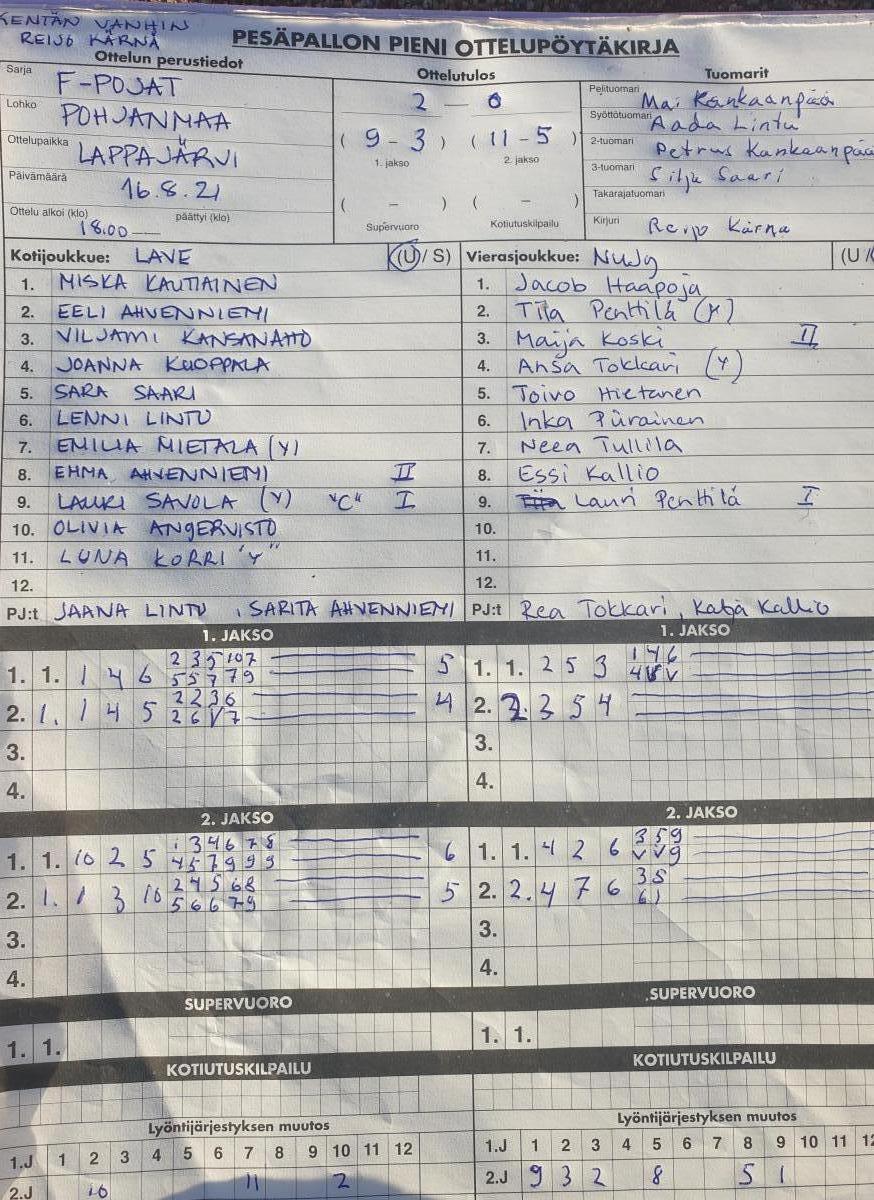 KENTÄN VANHIN
REIJO KÄRNÄ
PESÄPALLON PIENI OTTELUPÖYTÄKIRJA
Ottelun perustiedot
Sarja F-POJAT
Lohko POHJANMAA
Ottelupaikka LAPPAJÄRVI
Päivämäärä 16.8.21
Ottelu alkoi (klo) 18.00 päättyi (klo)
Ottelutulos
2 — 0
( 9 - 3 ) ( 11 - 5 )
1. jakso 2. jakso
( – ) ( – )
Supervuoro Kotiutuskilpailu
Tuomarit
Pelituomari Mai Kankaanpää
Syöttötuomari Aada Lintu
2-tuomari Petrus Kankaanpää
3-tuomari Silja Saari
Takarajatuomari
Kirjuri Reijo Kärnä
Kotijoukkue: LAVE (U / S)
1. MISKA KAUTIAINEN
2. EELI AHVENNIEMI
3. VILJAMI KANSANAHO
4. JOANNA KUOPPALA
5. SARA SAARI
6. LENNI LINTU
7. EMILIA MIETALA (Y)
8. EMMA AHVENNIEMI II
9. LAURI SAVOLA (Y) "C" I
10. OLIVIA ANGERVISTO
11. LUNA KORRI "Y"
12.
PJ:t JAANA LINTU, SARITA AHVENNIEMI
Vierasjoukkue: NuJy (U /
1. Jacob Haapoja
2. Tiia Penttilä (Y)
3. Maija Koski II
4. Ansa Tokkari (Y)
5. Toivo Hietanen
6. Inka Piirainen
7. Neea Tullila
8. Essi Kallio
9. Lauri Penttilä I
10.
11.
12.
PJ:t Rea Tokkari, Katja Kallio
1. JAKSO
1. 1. 1 4 6 2 3 5 10 7 5
5 5 7 7 9
2. 1. 1 4 5 2 2 3 6 4
2 6 V 7
3.
4.
1. JAKSO
1. 1. 2 5 3 1 4 6
4 V V
2. 2. 3 5 4
3.
4.
2. JAKSO
1. 1. 10 2 5 1 3 4 6 7 8 6
4 5 7 9 9 9
2. 1. 1 3 10 2 4 5 6 8 5
5 6 6 7 9
3.
4.
2. JAKSO
1. 1. 4 2 6 3 5 9
V V 9
2. 2. 4 7 6 3 5
6 1
3.
4.
SUPERVUORO
1. 1.
SUPERVUORO
1. 1.
KOTIUTUSKILPAILU
KOTIUTUSKILPAILU
Lyöntijärjestyksen muutos
1.J 1 2 3 4 5 6 7 8 9 10 11 12
2.J 10 11 2
Lyöntijärjestyksen muutos
1.J 1 2 3 4 5 6 7 8 9 10 11 12
2.J 9 3 2 8 5 1